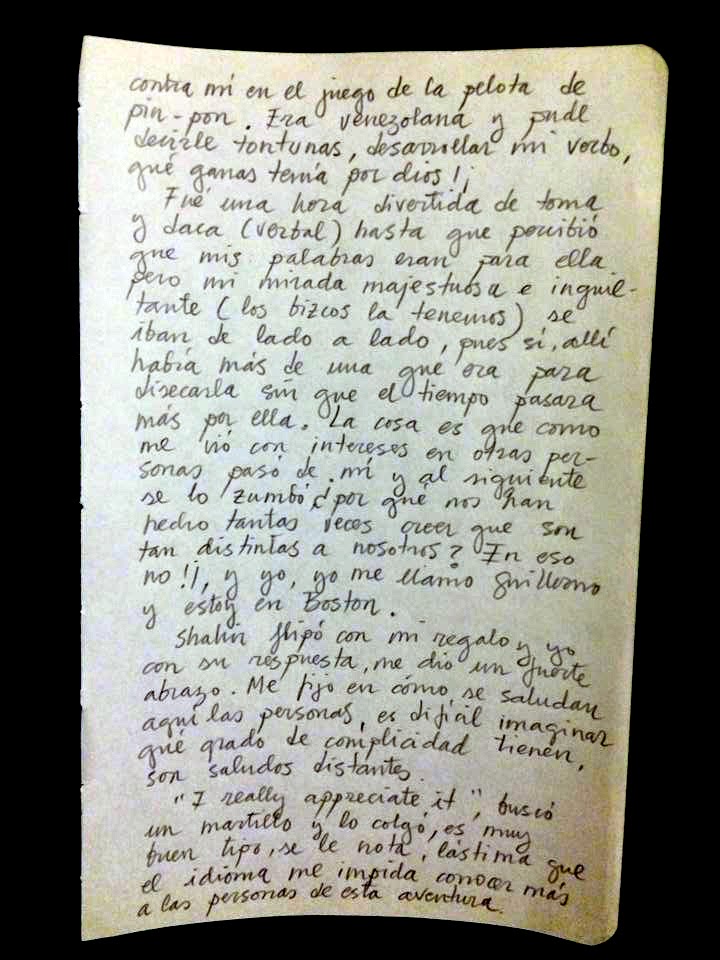 contra mí en el juego de la pelota de
pin-pon. Era venezolana y pude
decirle tontunas, desarrollar mi verbo,
qué ganas tenía por dios!¡
Fué una hora divertida de toma
y daca (verbal) hasta que percibió
que mis palabras eran para ella
pero mi mirada majestuosa e inquie-
tante (los bizcos la tenemos) se
iban de lado a lado, pues sí, allí
había más de una que era para
disecarla sin que el tiempo pasara
más por ella. La cosa es que como
me vió con intereses en otras per-
sonas pasó de mí y al siguiente
se lo zumbó ¿por qué nos han
hecho tantas veces creer que son
tan distintas a nosotros? En eso
no!¡, y yo, yo me llamo Guillermo
y estoy en Boston.
Shahir flipó con mi regalo y yo
con su respuesta, me dio un fuerte
abrazo. Me fijo en cómo se saludan
aquí las personas, es difícil imaginar
qué grado de complicidad tienen,
son saludos distantes.
"I really appreciate it", buscó
un martillo y lo colgó, es muy
buen tipo, se le nota, lástima que
el idioma me impida conocer más
a las personas de esta aventura.